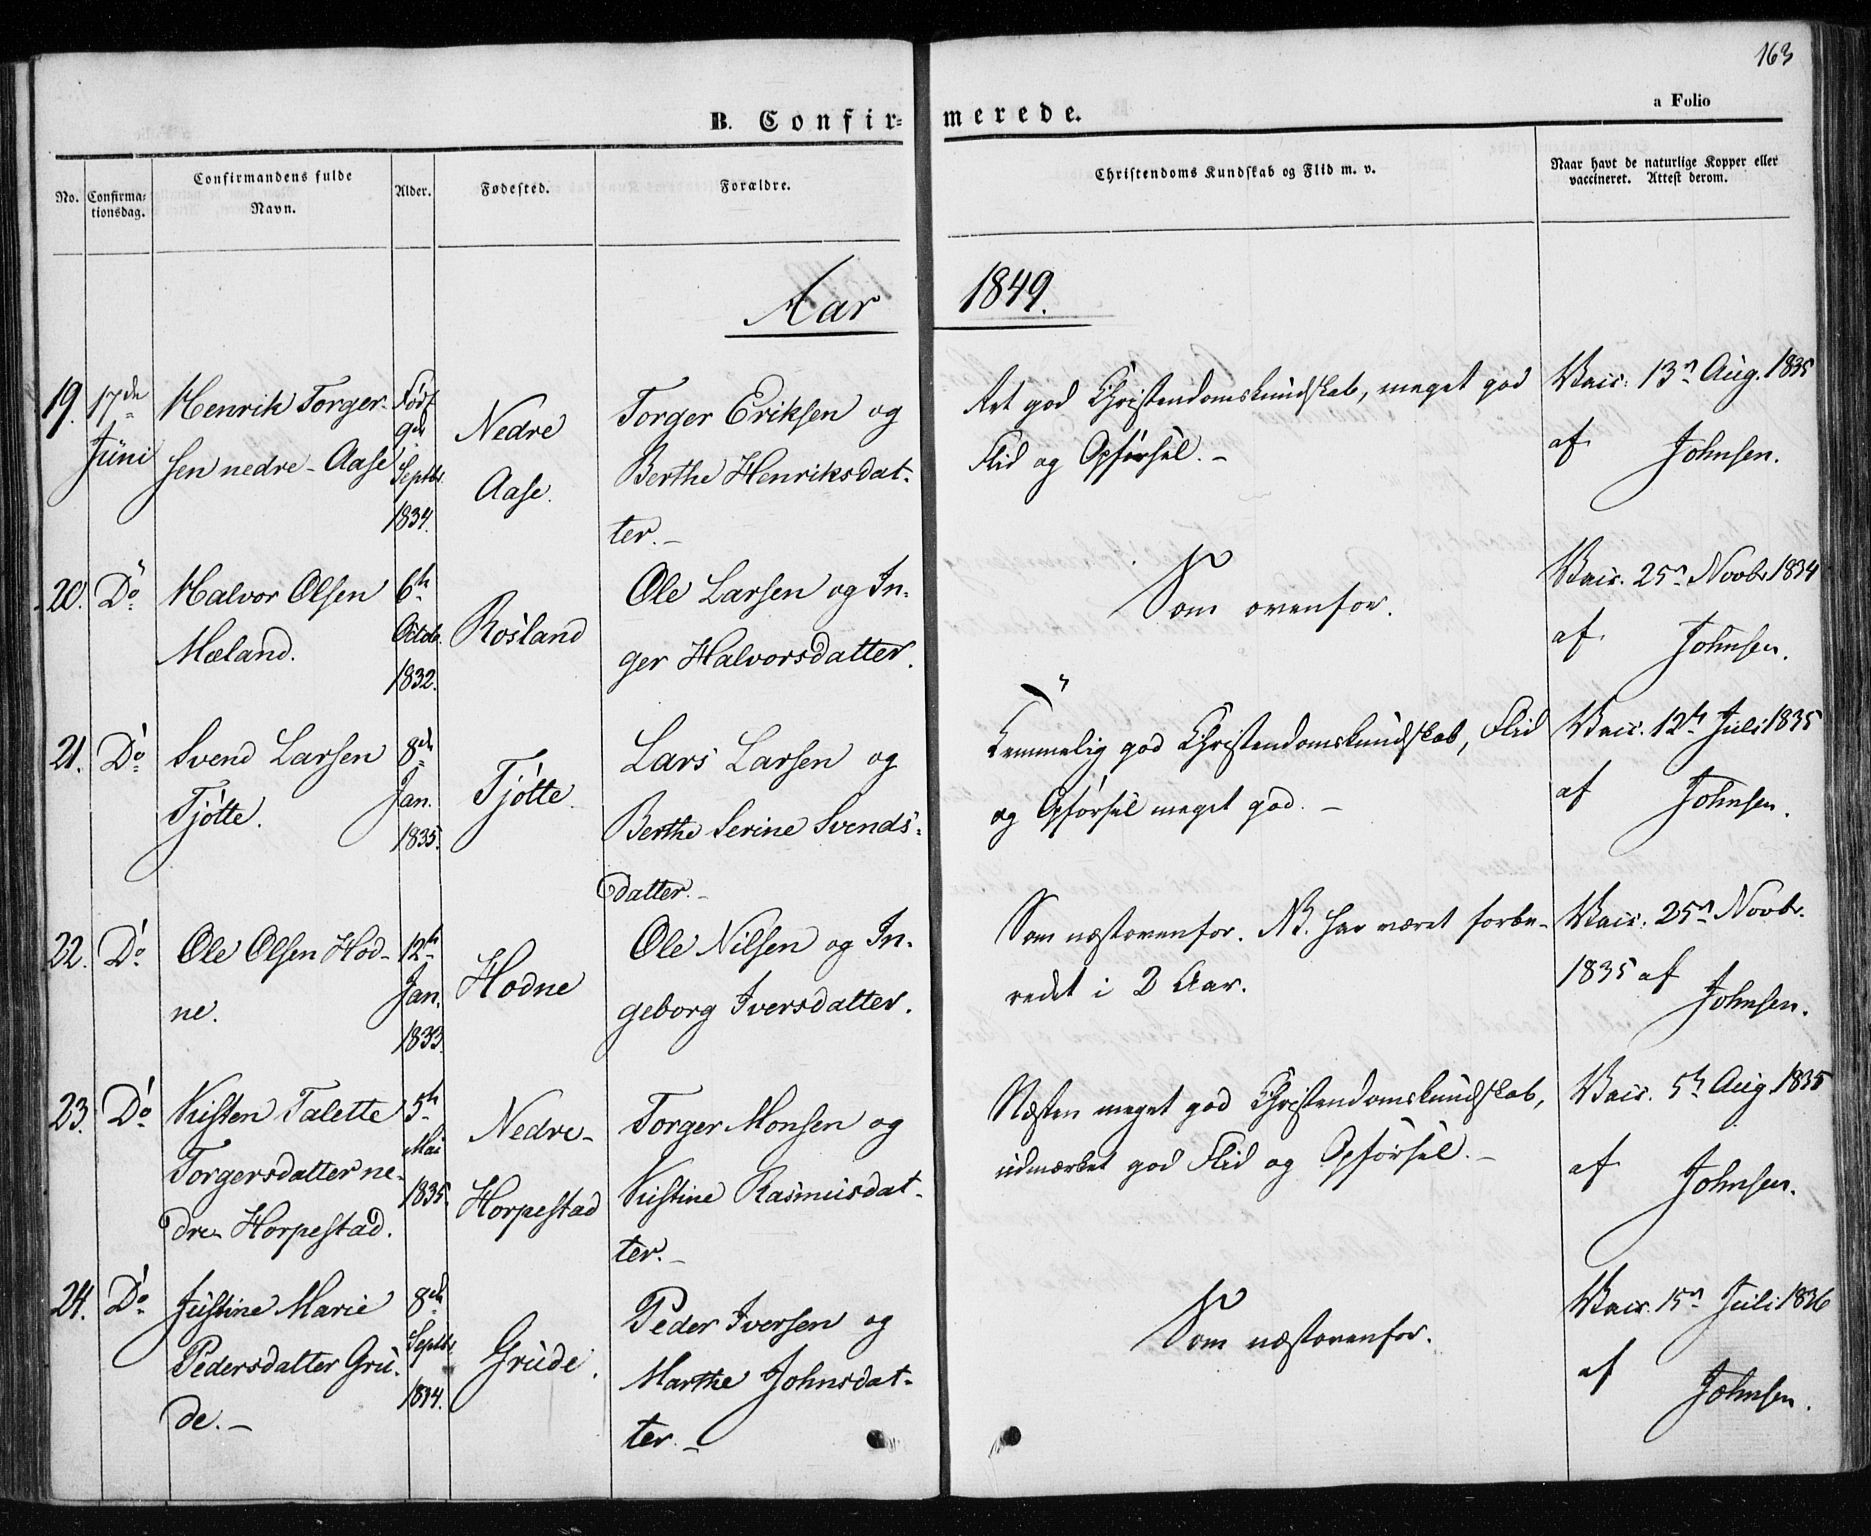 163
B. Confir=
merede.
a Folio
No.
Confirma=
tionsdag.
Confirmandens fulde
Navn.
Alder.
Fødested.
Forældre.
Christendoms Kundskab og Flid m. v.
Naar havt de naturlige Kopper eller
vaccineret. Attest derom.
Aar
1849.
19.
17de
Juni
Henrik Torger-
sen nedre-Aase
Født
9de
Septbr.
1834.
Nedre
Aase.
Torger Eriksen og
Berthe Henriksdat-
ter.-
Ret god Christendomskundskab, meget god
Flid og Opførsel.-
Vacc. 13n Aug. 1835
af
Johnsen.
20.
Do
Halvor Olsen
Mæland.
6te
Octob.
1832.
Rosland
Ole Larsen og In-
ger Halvorsdatter.
Som ovenfor.
Vacc. 25n Novbr 1834
af
Johnsen.
21.
Do
Svend Larsen
Tjøtte.
8de
Jan.
1835.
Tjøtte.
Lars Larsen og
Berthe Serine Svends-
datter.-
Temmelig god Christendomskundskab, Flid
og Opførsel meget god.-
Vacc. 12te Juli 1835
af
Johnsen.
22.
Do
Ole Olsen Hod-
ne.
12te
Jan.
1833.
Hodne
Ole Nilsen og In-
geborg Iversdatter.
Som næstovenfor. NB. har været forbe-
redet i 2 Aar.
Vacc. 25n Novbr.
1835 af
Johnsen.
23.
Do
Kisten Talette
Torgersdatter ne-
dre-Horpestad.
5te
Mai
1835.
Nedre-
Horpestad
Torger Monsen og
Kistine Rasmusdat-
ter.-
Næsten meget god Christendomskundskab,
udmærket god Flid og Opførsel.-
Vacc. 5te Aug. 1835
af
Johnsen.
24.
Do
Justine Marie
Pedersdatter Gru-
de.-
8de
Septbr.
1834.
Grude.
Peder Iversen og
Marthe Johnsdat-
ter.-
Som næstovenfor.
Vacc. 15n Juli 1836
af
Johnsen.